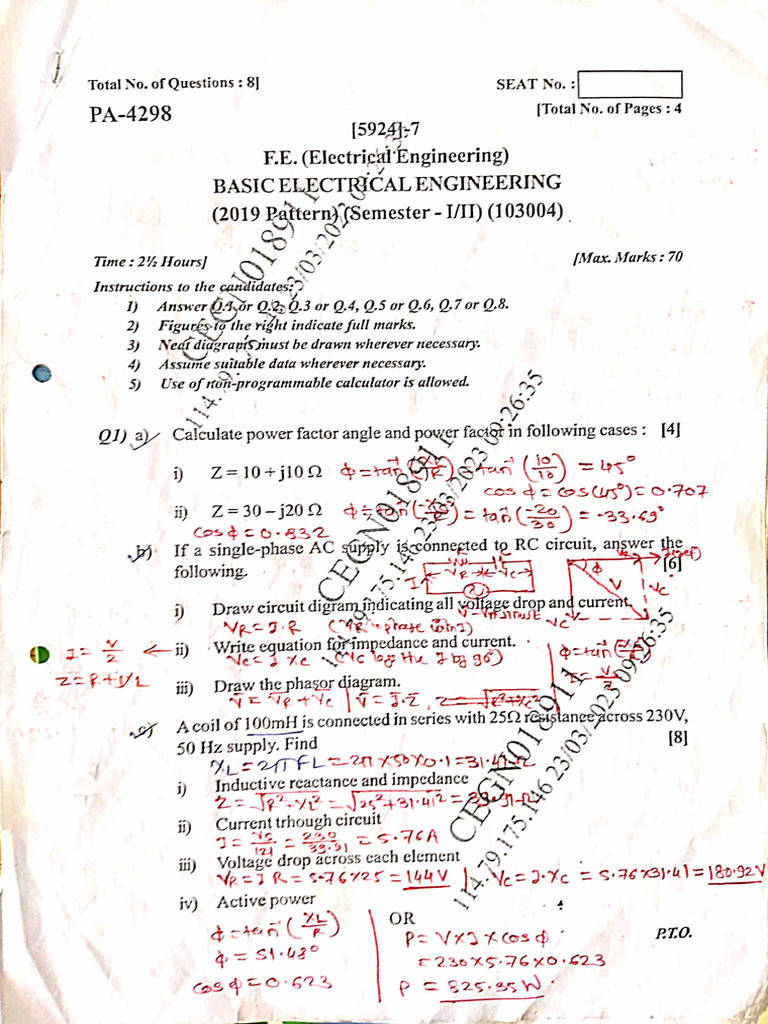 Total No. of Questions : 8]
SEAT No. :
PA-4298
[Total No. of Pages : 4
[5924]-7
F.E. (Electrical Engineering)
BASIC ELECTRICAL ENGINEERING
(2019 Pattern) (Semester - I/II) (103004)
Time : 2½ Hours]
[Max. Marks : 70
Instructions to the candidates:
1) Answer Q.1 or Q.2, Q.3 or Q.4, Q.5 or Q.6, Q.7 or Q.8.
2) Figures to the right indicate full marks.
3) Neat diagrams must be drawn wherever necessary.
4) Assume suitable data wherever necessary.
5) Use of non-programmable calculator is allowed.
CEGN018911
114.79.175.146 23/03/2023 09:26:35
Q1) a) Calculate power factor angle and power factor in following cases : [4]
i) Z = 10 + j10 Ω ϕ = tan⁻¹(XL/R) = tan⁻¹(10/10) = 45°
cos ϕ = cos(45°) = 0.707
ii) Z = 30 – j20 Ω ϕ = tan⁻¹ = tan⁻¹(-20/30) = -33.69°
cos ϕ = 0.832
b) If a single-phase AC supply is connected to RC circuit, answer the
following. [6]
VR VC
I
ϕ V VC
i) Draw circuit digram indicating all voltage drop and current
VR = I.R
ii) Write equation for impedance and current.
I = V/Z
VC = I XC
iii) Draw the phasor diagram.
V = VR + VC | V = I.Z,
CEGN018911
114.79.175.146 23/03/2023 09:26:35
c) A coil of 100mH is connected in series with 25Ω resistance across 230V,
50 Hz supply. Find [8]
XL = 2πFL = 2π×50×0.1 = 31.41Ω
i) Inductive reactance and impedance
Z = √R²+XL² = √25²+31.41² =
ii) Current trhough circuit
I = = 230 = 5.76A
iii) Voltage drop across each element
VR = I R = 5.76×25 = 144V | VC = I.XC = 5.76×31.41 = 180.92V
iv) Active power
ϕ = tan⁻¹(XL/R)
ϕ = 51.48°
cos ϕ = 0.623
OR
P = V×I×cos ϕ
= 230×5.76×0.623
P = 825.35W
P.T.O.
CEGN018911
114.79.175.146 23/03/2023 09:26:35